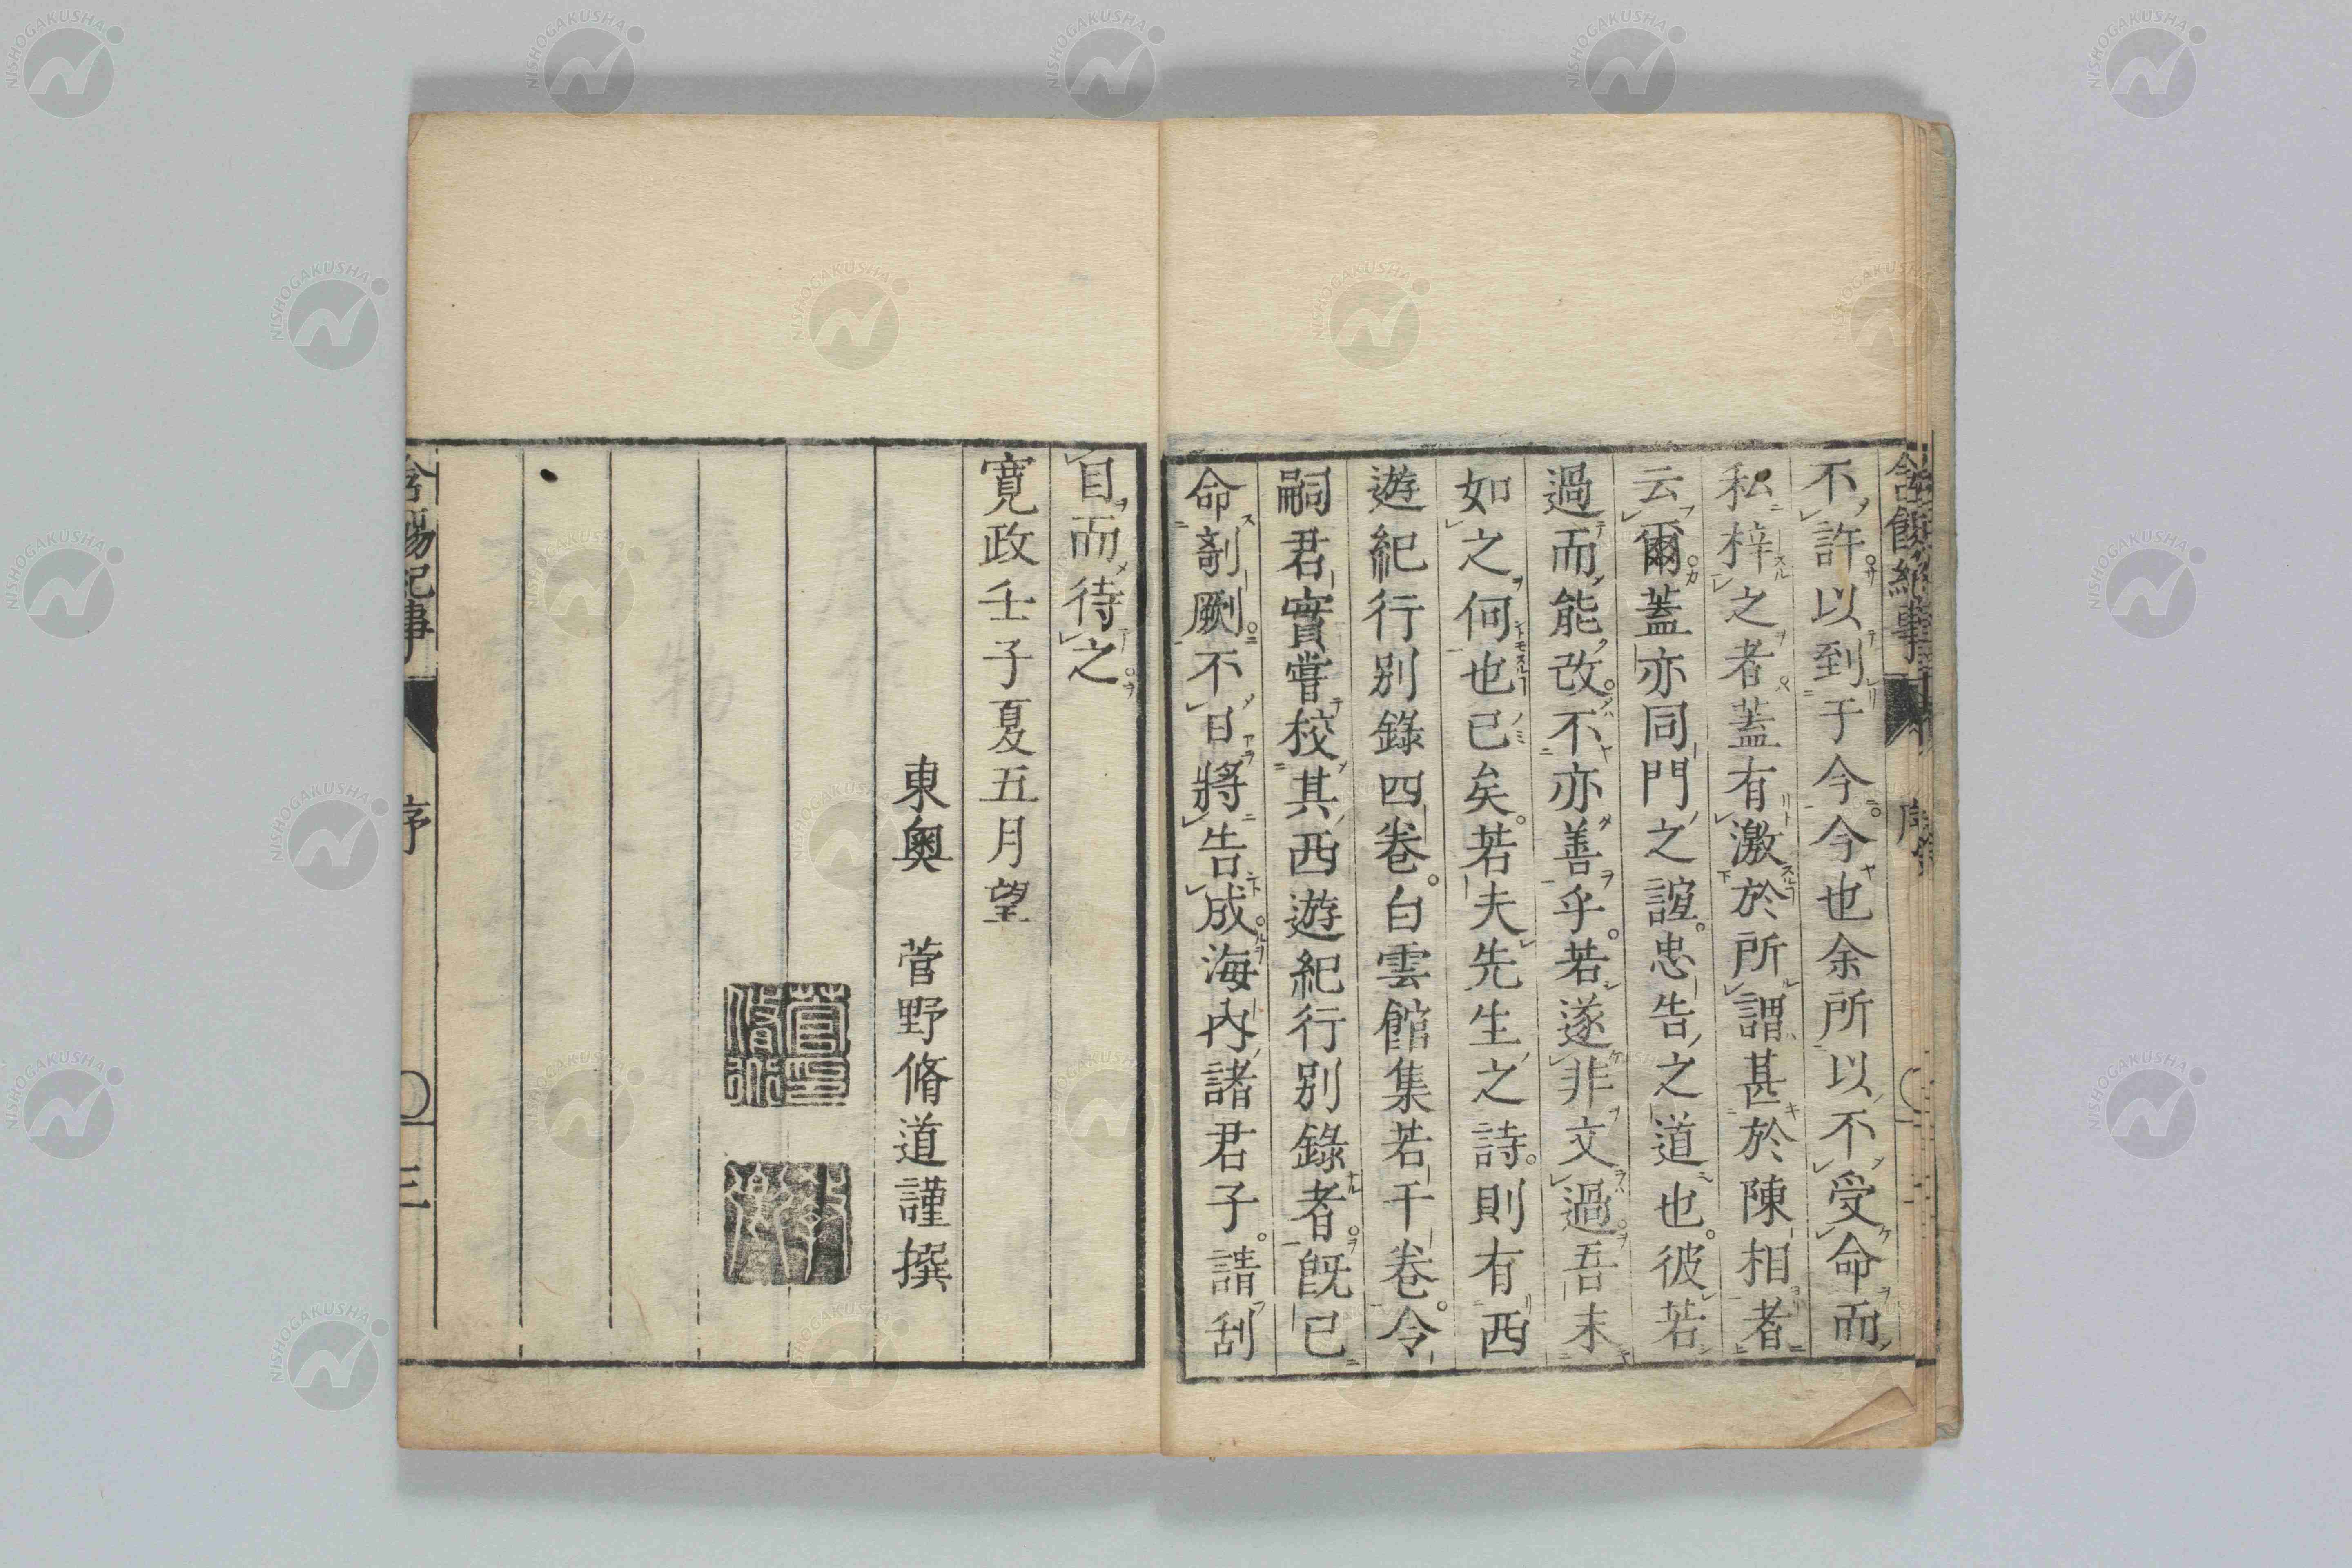 不許以到于今今也余所以不受命而
私梓之者蓋有激於所謂甚於陳相者
云爾蓋亦同門之誼忠告之道也彼若
過而能改不亦善乎若遂非文過吾末
如之何也已矣若夫先生之詩則有西
遊紀行別錄四卷白雲館集若干卷令
嗣君實嘗校其西遊紀行別錄者既已
命剞劂不日將告成海內諸君子請刮
目而待之
寬政壬子夏五月望
東奧 菅野脩道謹撰
序
三
NISHOGAKUSHA